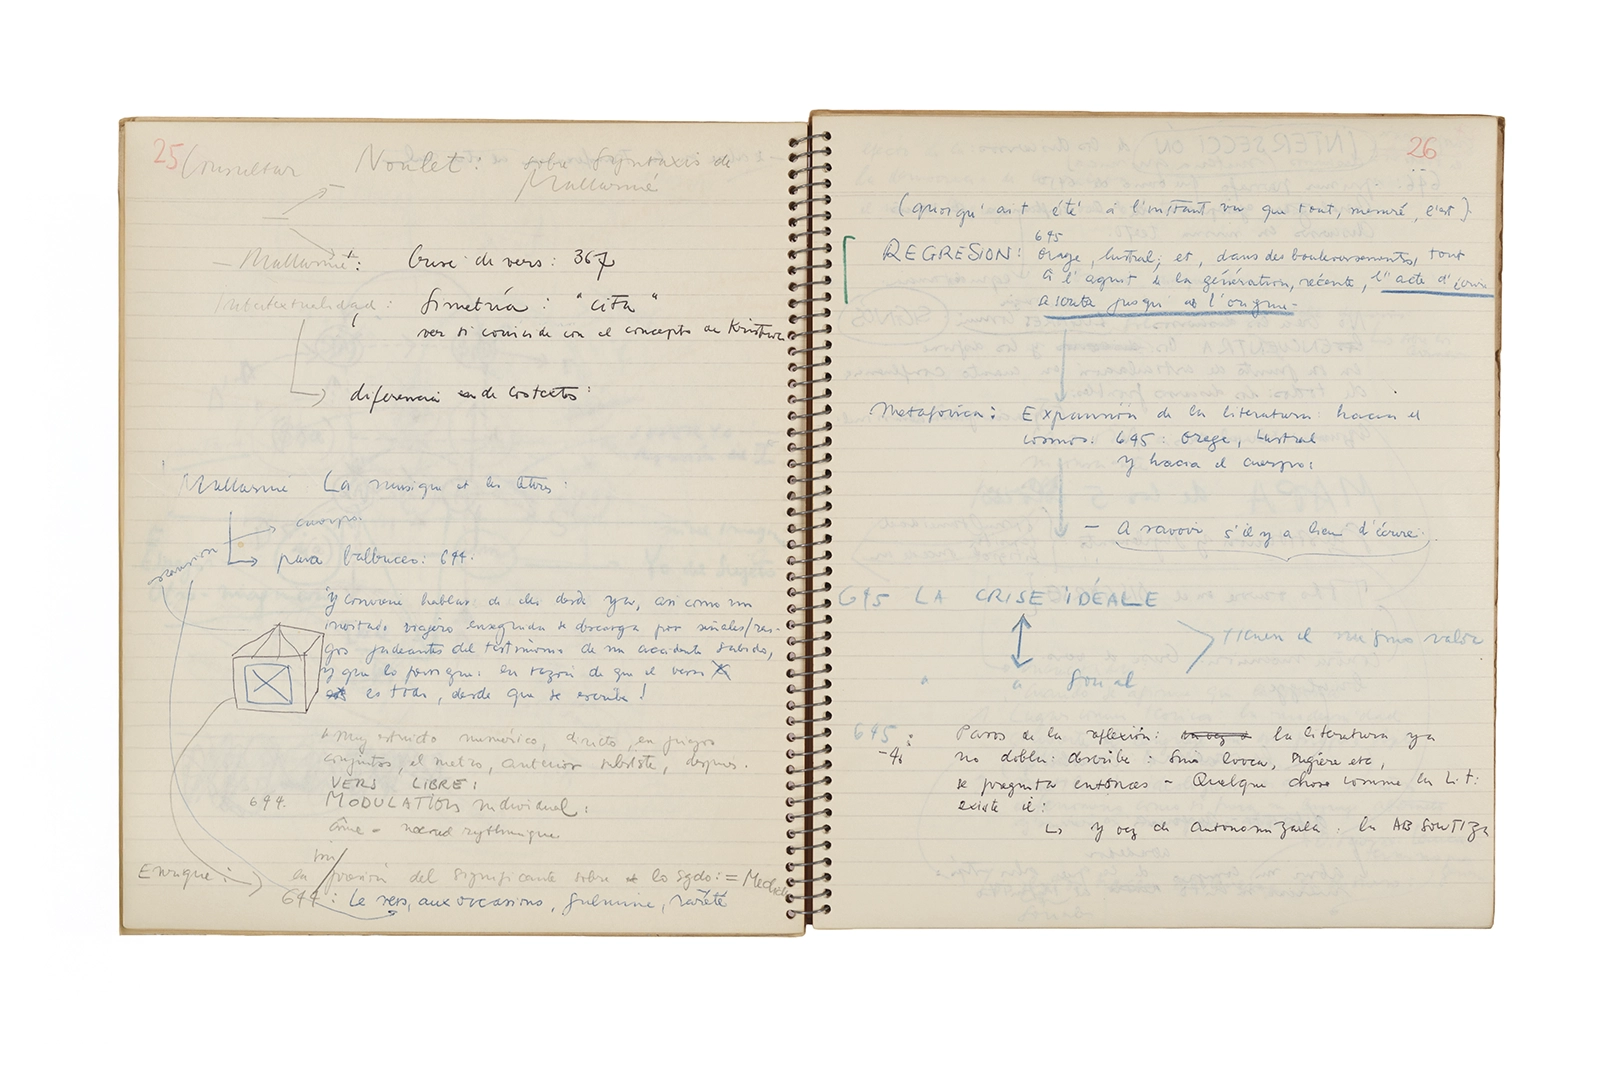 25 Consultar Noulet: sobre Syntaxis de
Mallarmé
— Mallarmé: Crise de vers: 367
Intertextualidad: Simetría: "cita"
ver si coincide con el concepto de Kristeva
diferencia de contextos:
Mallarmé: La musique et les lettres:
cuerpo.
para balbuceo: 644.
expansión
y conviene hablar de ello desde ya, así como un
invitado viajero enseguida se descarga por señales/ras-
gos jadeantes del testimonio de un accidente sabido,
y que lo persigue: en razón de que el verso
es todo, desde que se escribe!
muy estricto numérico, directo, en juegos
conjuntos, el metro, anterior subsiste, después.
VERS LIBRE:
644. MODULATION individual:
âme = noeud rythmique
Enrique: en función del significante sobre lo sgdo: =
644: Le vers, aux occasions, fulmine, rareté
26
(quoiqu'ait été à l'instant vu que tout, mesuré, l'est)
645
REGRESION: Orage, lustral; et, dans des bouleversements, tout
à l'acquit de la génération, récente, l'acte d'écrire
se scruta jusqu'en l'origine.
Metafórica: Expansión de la literatura: hacia el
cosmos: 645: Orage, Lustral
y hacia el cuerpo:
— A savoir s'il y a lieu d'écrire.
645 LA CRISE IDÉALE
tienen el mismo valor
" " Social
645: Pasos de la reflexión: la literatura ya
no dobla: describe: Sino evoca, sugiere etc,
se pregunta entonces - Quelque chose comme les Lettres
existe il:
y vez de autonomizarla: la ABSOLUTIZA